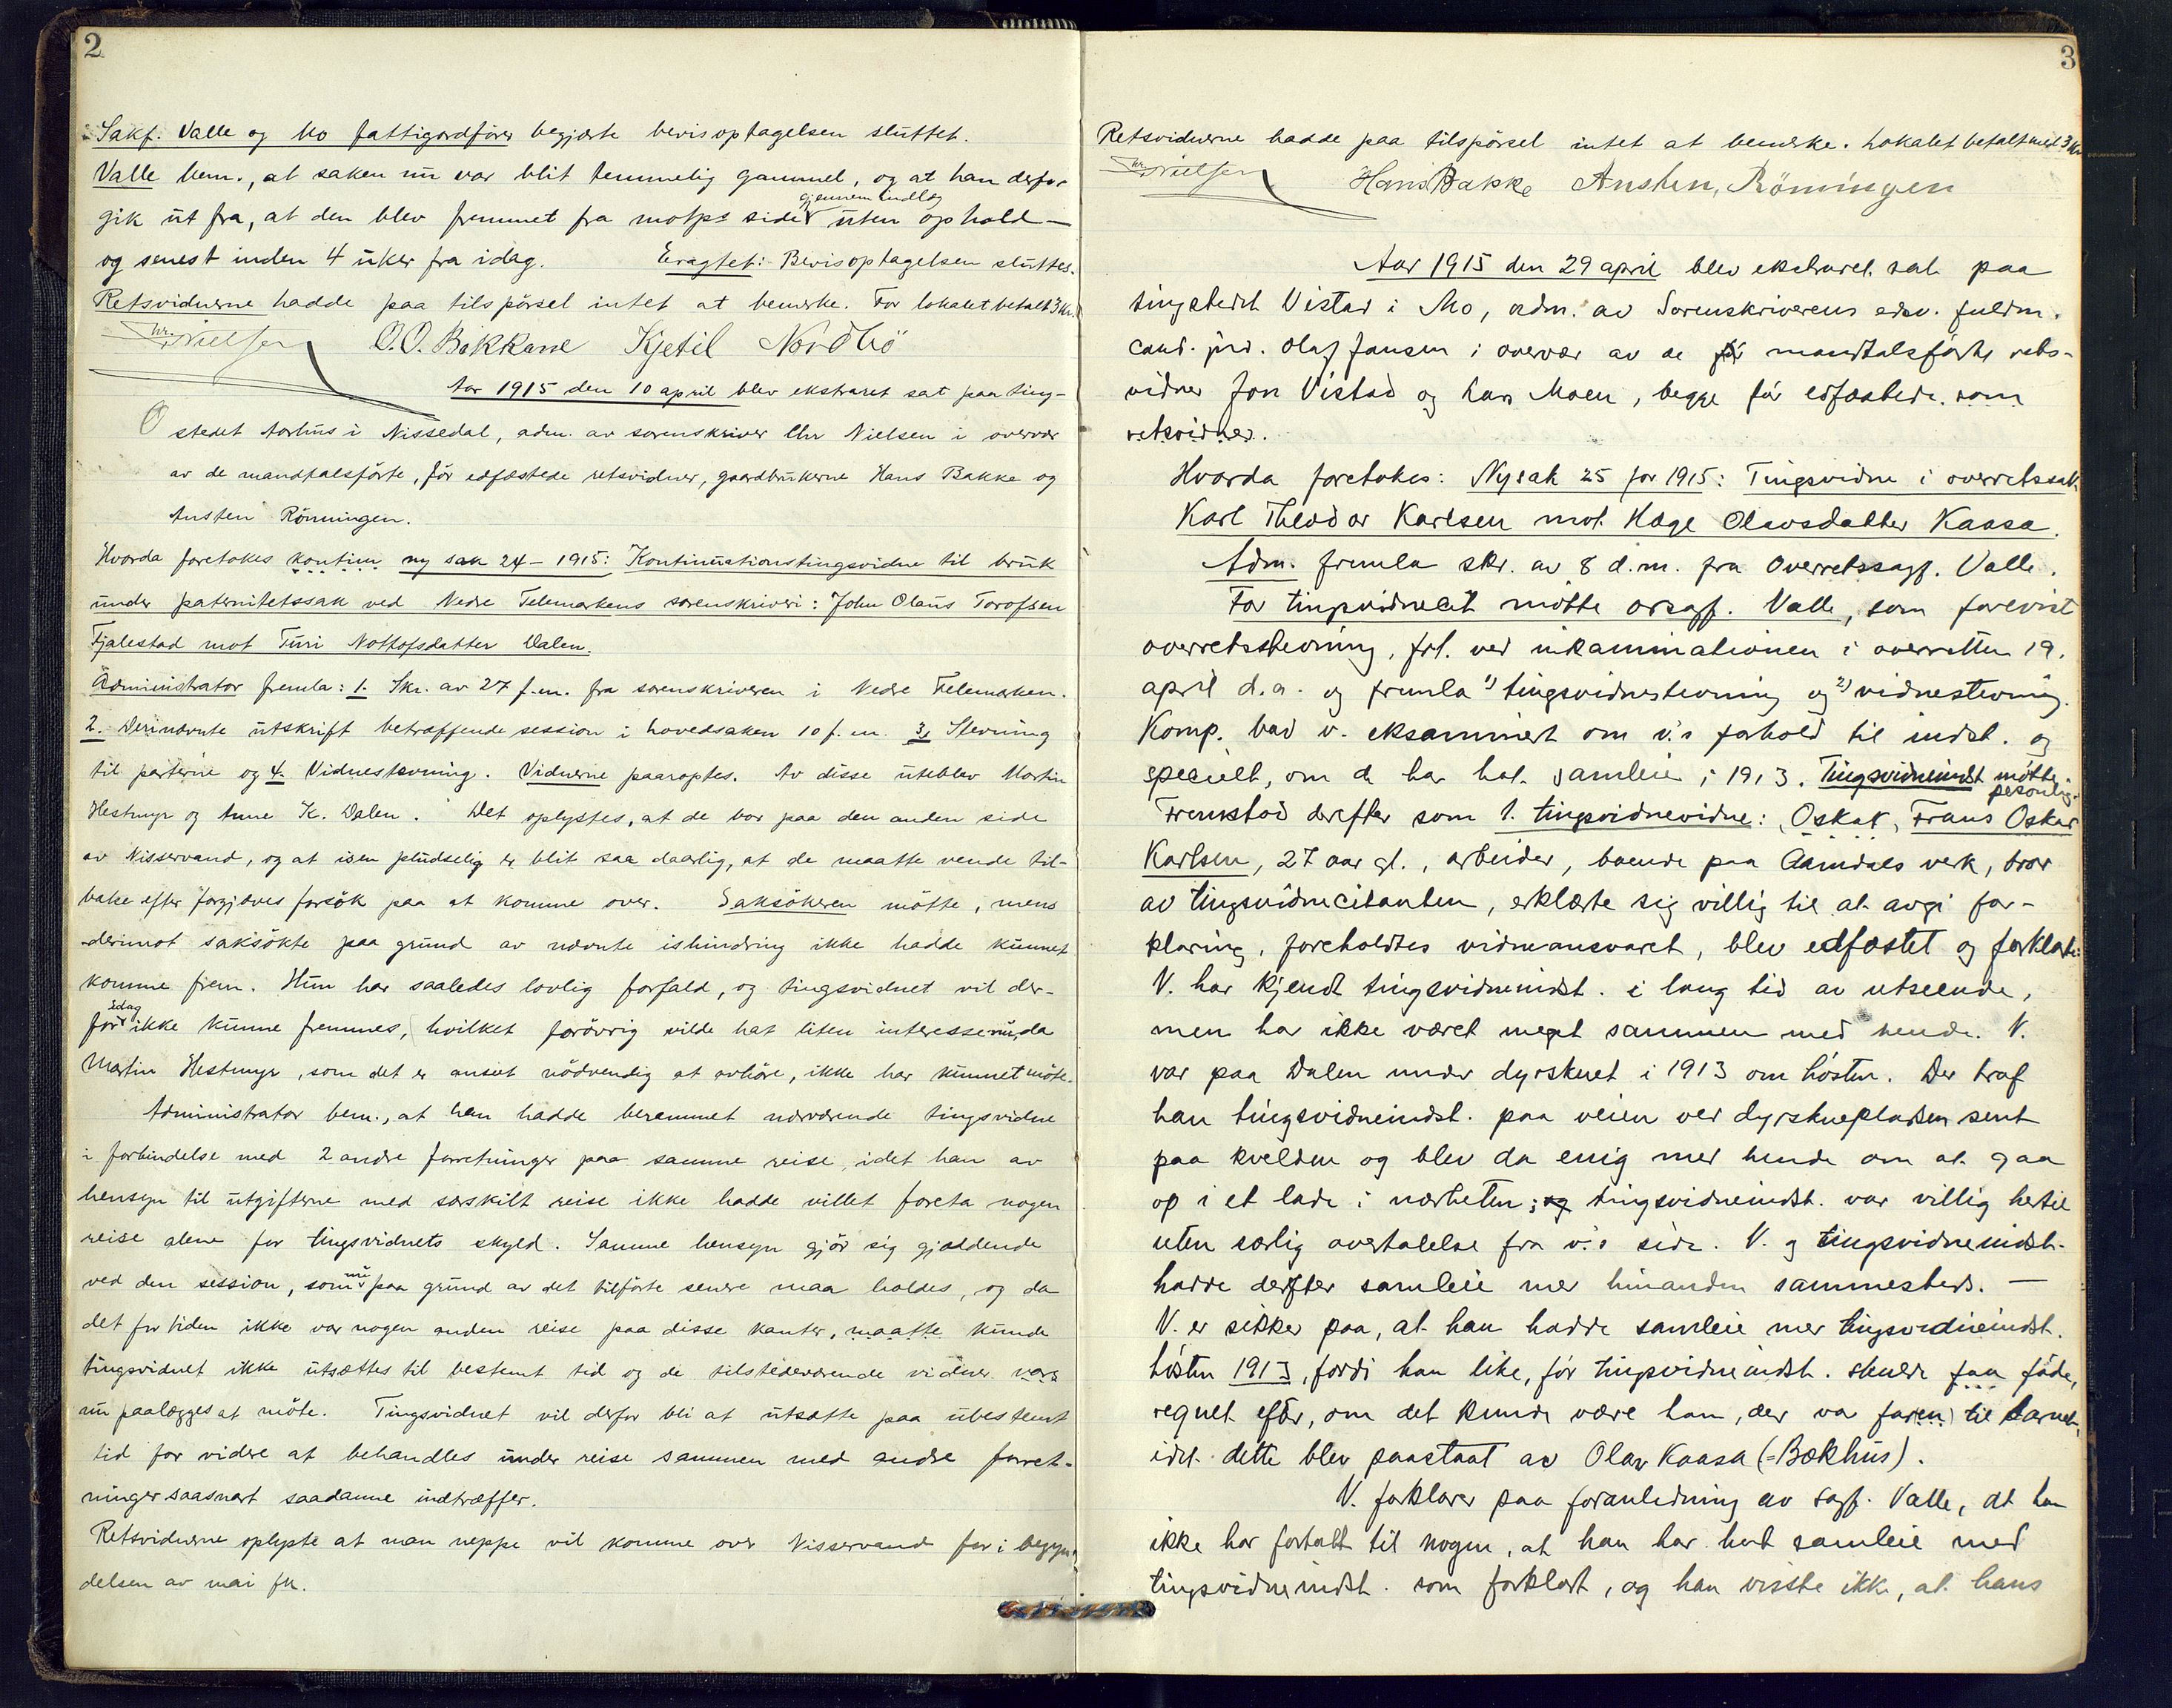 2
Sakf. Valle og Mo fattigordförer begjærte bevisoptagelsen sluttet.
Valle bem., at saken nu var blit temmelig gammel, og at han derfor
gik ut fra, at den blev fremmet fra motps side gjennem indlæg uten ophold —
og senest inden 4 uker fra idag. Eragtet: Bevisoptagelsen sluttes.
Retsvidnerne hadde paa tilspörsel intet at bemerke. For lokalet betalt 3 kr.
Chr. Nielsen O.O. Bakkane Kjetil Nordbö
Aar 1915 den 10 april blev ekstraret sat paa ting-
stedet Aarhus i Nissedal, adm. av sorenskriver Chr Nielsen i overvær
av de mandtalsförte, för edfæstede retsvidner, gaardbrukerne Hans Bakke og
Austen Rönningen.
Hvorda foretokes kontinu ny sak 24 – 1915: Kontinuationstingsvidne til bruk
under paternitetssak ved Nedre Telemarkens sorenskriveri: John Olaus Torofsen
Fjalestad mot Turi Nottofsdatter Dalen.
Administrator fremla: 1. Skr. av 27 f.m. fra sorenskriveren i Nedre Telemarken.
2. Derinævnte utskrift betræffende session i hovedsaken 10 f.m. 3, Stevning
til parterne og 4. Vidnestevning. Vidnerne paaroptes. Av disse uteblev Martin
Hestmyr og Anne K. Dalen. Det oplystes, at de bor paa den anden side
av Nisservand, og at isen pludselig er blit saa daarlig, at de maatte vende til-
bake efter forgjæves forsök paa at komme over. Saksökeren mötte, mens
derimot saksökte paa grund av nævnte ishindring ikke hadde kunnet
komme frem. Hun har saaledes lovlig forfald, og tingsvidnet vil der-
for idag ikke kunne fremmes, hvilket forövrig vilde hat liten interesse nu, da
Martin Hestmyr, som det er anset nödvendig at avhöre, ikke har kunnet möte.
Administrator bem., at han hadde berammet nærværende tingsvidne
i forbindelse med 2 andre forretninger paa samme reise, idet han av
hensyn til utgifterne med særskilt reise ikke hadde villet foreta nogen
reise alene for tingsvidnets skyld. Samme hensyn gjör sig gjældende
ved den session, som nu paa grund av det tilförte senere maa holdes, og da
det for tiden ikke var nogen anden reise paa disse kanter, maatte kunde
tingsvidnet ikke utsættes til bestemt tid og de tilstedeværende vidner være
nu paalægges at möte. Tingsvidnet vil derfor bli at utsætte paa ubestemt
tid for videre at behandles under reise sammen med andre forret-
ninger saasnart saadanne indtræffer.
Retsvidnerne oplyste at man neppe vil komme over Nisservand för i begyn-
delsen av mai fk.
3
Retsvidnerne hadde paa tilspörsel intet at bemerke. Lokalet betalt med 3 kr
Chr. Nielsen Hans Bakke Austen, Rönningen
Aar 1915 den 29 april blev ekstraret sat paa
tingstedet Vistad i Mo, adm. av Sorenskriverens edsv. fuldm.
cand. jur. Olaf Jansen i overvær av de för mandtalsförte rets-
vidner Jon Vistad og Hans Moen, begge för edfæstede som
retsvidner.
Hvorda foretokes: Nysak 25 for 1915: Tingsvidne i overretssak
Karl Theodor Karlsen mot Hæge Olavsdatter Kaasa.
Adm. fremla skr. av 8 d.m. fra Overretssagf. Valle.
For tingsvidnecit mötte orsagf. Valle, som forevist
overretsstevning, frl. ved inkaminationen i overretten 19.
april d.a. og fremla 1) tingsvidnestevning og 2) vidnestevning.
Komp. bad v. eksaminert om v.s forhold til indst. og
specielt, om de har hat samleie i 1913. Tingsvidneindst mötte personlig.
Fremstod derefter som 1. tingsvidnevidne: Oskar, Frans Oskar
Karlsen, 27 aar gl., arbeider, boende paa Aamdals verk, bror
av tingsvidnecitanten, erklærte sig villig til at avgi for-
klaring, foreholdtes vidneansvaret, blev edfæstet og forklarte:
V. har kjendt tingsvidneindst. i lang tid av utseende,
men har ikke været meget sammen med hende. V.
var paa Dalen under dyrskuet i 1913 om hösten. Der traf
han tingsvidneindst. paa veien ved dyrskuepladsen sent
paa kvelden og blev da enig med hende om at gaa
op i et lade i nærheten; og tingsvidneindst. var villig hertil
uten særlig overtalelse fra v.s side. V. og tingsvidneindst.
hadde derefter samleie med hinanden sammesteds. —
V. er sikker paa, at han hadde samleie med tingsvidneindst.
hösten 1913, fordi han like, för tingsvidneindst. skulde faa föde,
regnet efter, om det kunde være han, der var faren til barnet,
idet dette blev paastaat av Olav Kaasa (= Bækhus).
V. forklarer paa foranledning av sagf. Valle, at han
ikke har fortalt til nogen, at han har hat samleie med
tingsvidneindst. som forklart, og han visste ikke, at hans